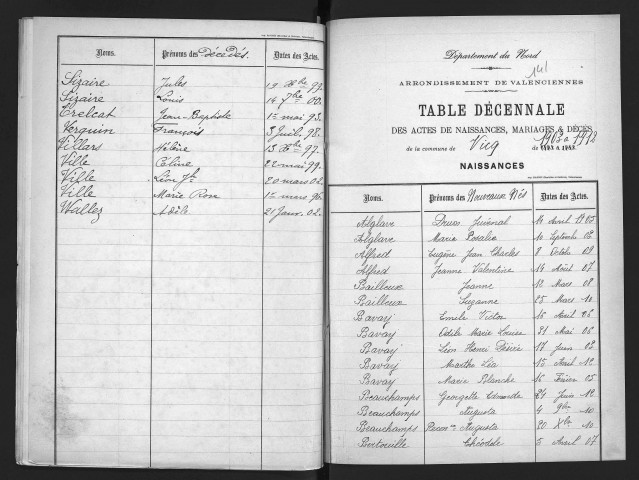 Noms. Prénoms des Décédés. Dates des Actes.
Sizaire Jules 19 Xbre 97.
Sizaire Louis 14 7bre 00.
Trelcat Jean-Baptiste 1er mai 93.
Verquin François 3 Juil. 98.
Villars Hélène 13 Xbre 97.
Ville Céline 22 mai 99.
Ville Léon Jh 20 mars 02.
Ville Marie Rose 1er mars 96.
Wallez Adèle 21 Janv. 02.
Département du Nord
141
ARRONDISSEMENT DE VALENCIENNES
TABLE DÉCENNALE
DES ACTES DE NAISSANCES, MARIAGES & DÉCÈS
de la commune de Vicq de 1903 à 1912
NAISSANCES
Noms. Prénoms des Nouveaux Nés Dates des Actes.
Alglave Juvénal 16 Avril 1903
Alglave Marie Rosalie 10 Septembre 06
Alfred Eugène Jean Charles 8 Octobre 09
Alfred Jeanne Valentine 14 Août 07
Bailleux Jeanne 12 Mars 08
Bailleux Suzanne 25 Mars 10
Bavay Emile Victor 16 Avril 06
Bavay Odile Marie Louise 21 Mai 06
Bavay Léon Henri Désiré 17 Juin 03
Bavay Marthe Léa 15 Avril 12
Bavay Marie Blanche 16 Février 05
Beauchamps Georgette 24 Juin 12
Beauchamps Augusta 4 9bre 10
Beauchamps Augusta 20 Xbre 10
Bertouille Théodule 5 Avril 07